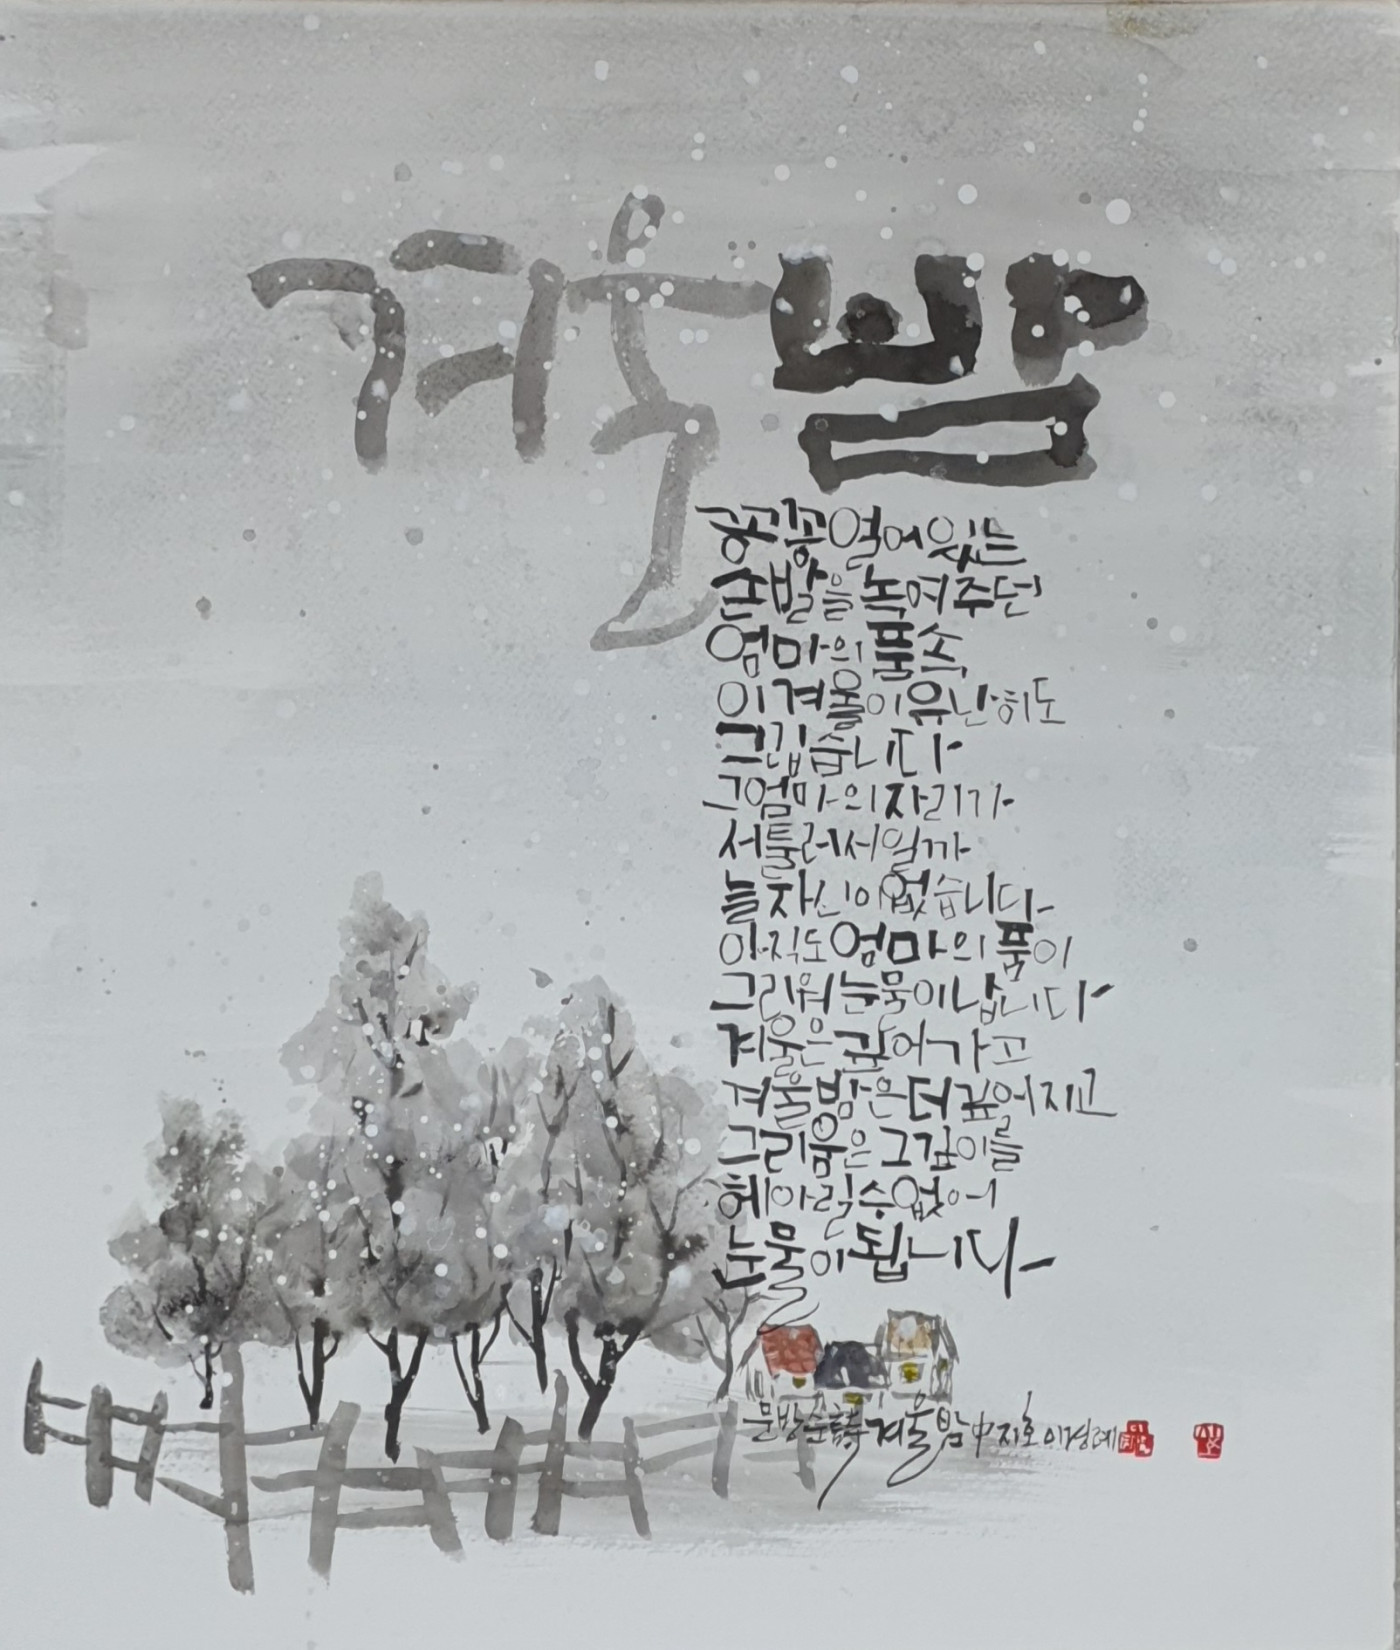 겨울밤
꽁꽁 얼어 있는
손발을 녹여 주던
엄마의 품속
이 겨울이 유난히도
그립습니다
그 엄마의 자리가
서툴러서일까
늘 자신이 없습니다
아직도 엄마의 품이
그리워 눈물이 납니다
겨울은 깊어 가고
겨울밤은 더 깊어지고
그리움은 그 깊이를
헤아릴 수 없어
눈물이 됩니다
문방순 詩 겨울밤 中 지호 이경례